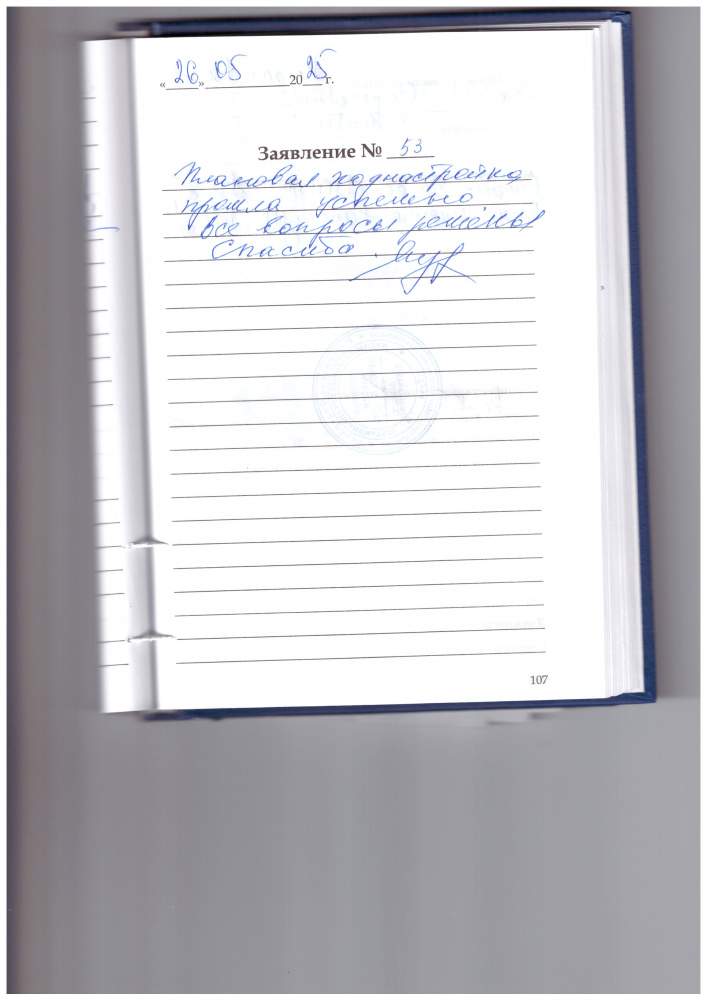 «26» 05 2025 г.
Заявление № 53
Плановая поднастройка
прошла успешно
все вопросы решены
Спасибо
107